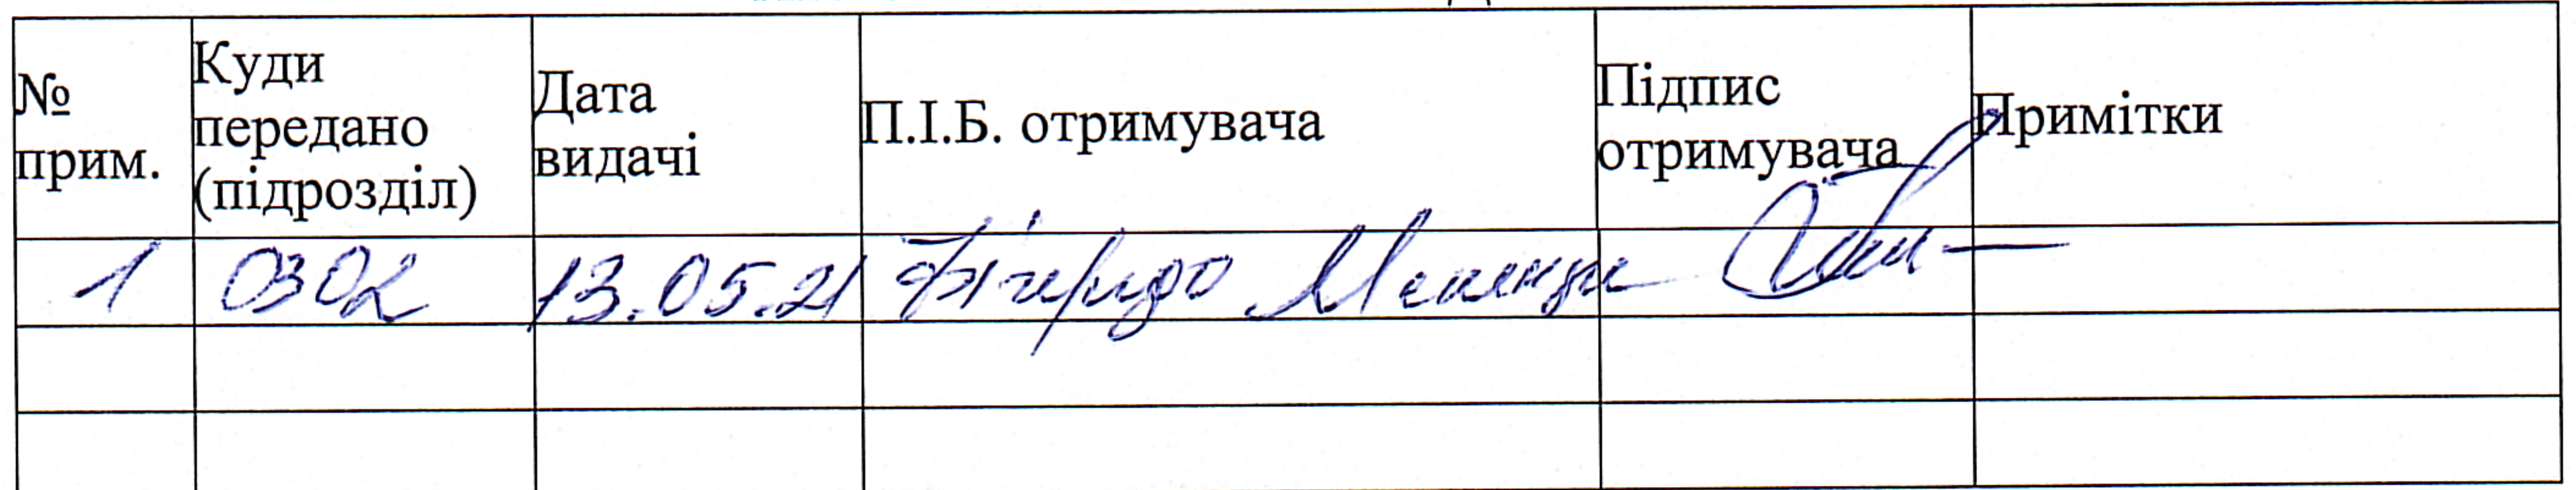 № прим. Куди передано (підрозділ) Дата видачі П.І.Б. отримувача Підпис отримувача Примітки
1 0302 13.05.21